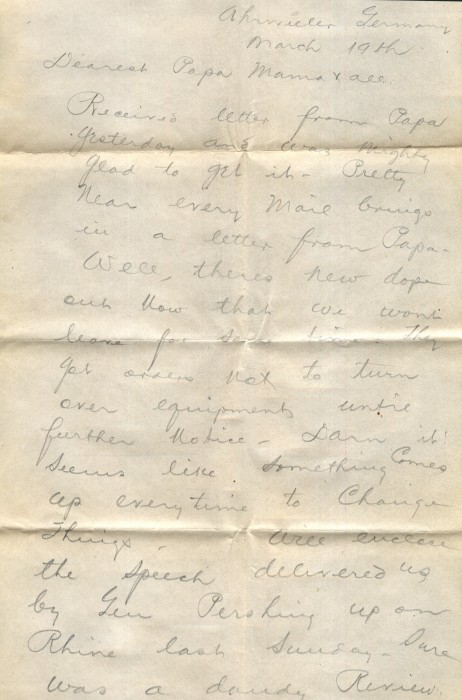 Ahrweiler Germany
March 19th
Dearest Papa Mama & all.
Received letter from Papa
yesterday and was mighty
glad to get it - Pretty
Near every Mail brings
in a letter from Papa -
Well, theres New dope
out Now that we wont
leave for some time - They
got orders Not to turn
over equipments until
further Notice - Darn it!
Seems like something Comes
up everytime to Change
Things. Will enclose
the speech delivered us
by Gen Pershing up on
Rhine last Sunday - Sure
was a dandy Review.